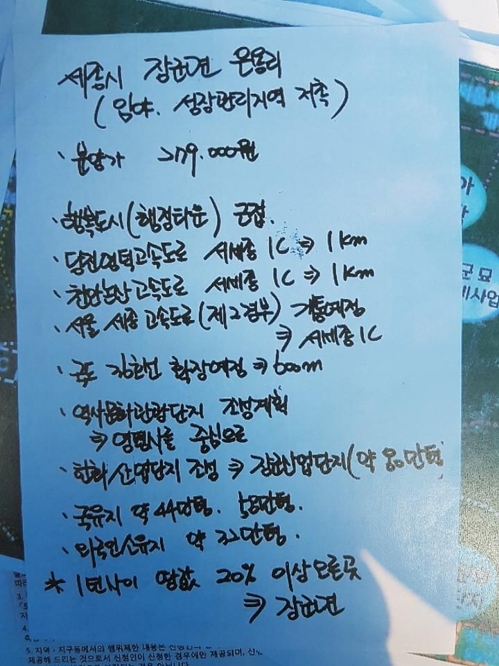 세종시 장군면 은용리
(임야. 성장관리지역 저촉)
· 분양가 279.000원
· 행복도시(행정타운) 근접.
· 당진영덕고속도로 서세종 IC ⇒ 1Km
· 천안논산고속도로 서세종 IC ⇒ 1Km
· 서울 세종 고속도로(제2경부) 개통예정
⇒ 서세종 IC
· 확장예정 ⇒ 600m
· 역사문화관광단지 조성계획
⇒ 영평사를 중심으로
· 산업단지 조성 ⇒ 장군산업단지(약 80만평
· 국유지 약 44만평.
· 외국인소유지 약 22만평.
* 1년사이 땅값 20% 이상오른곳
⇒ 장군면
군묘
5. 지역·지구등에서의 행위제한 내용은
제공해 드리는 것으로서 신청인이 신청한 경우에만 제공되며,